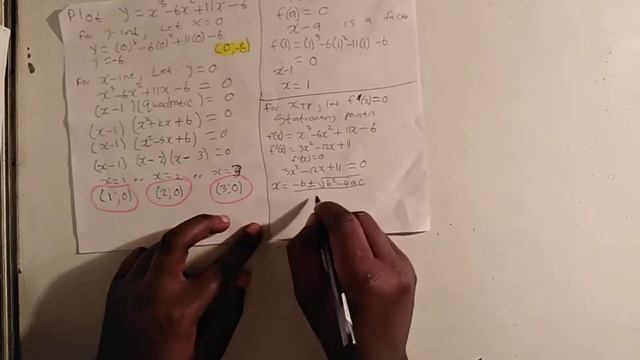 Plot y = x³-6x²+11x-6
For y-int, Let x=0
y = (0)³-6(0)²+11(0)-6
y=-6
(0;-6)
For x-int, Let y=0
x³-6x²+11x-6 = 0
(x-1)(quadratic) = 0
(x-1)(x²+kx+6) = 0
(x-1)(x²-5x+6) = 0
(x-1)(x-2)(x-3) = 0
x=1 or x=2 or x=3
(1;0) (2;0) (3;0)
f(a) = 0
x-a is a factor
f(1) = (1)³-6(1)²-11(1)-6
= 0
x-1
x=1
For xTP, let f'(x)=0
Stationary points
f(x) = x³-6x²+11x-6
f'(x) = 3x²-12x+11
f'(x)=0
3x²-12x+11 = 0
x = -b±√b²-4ac